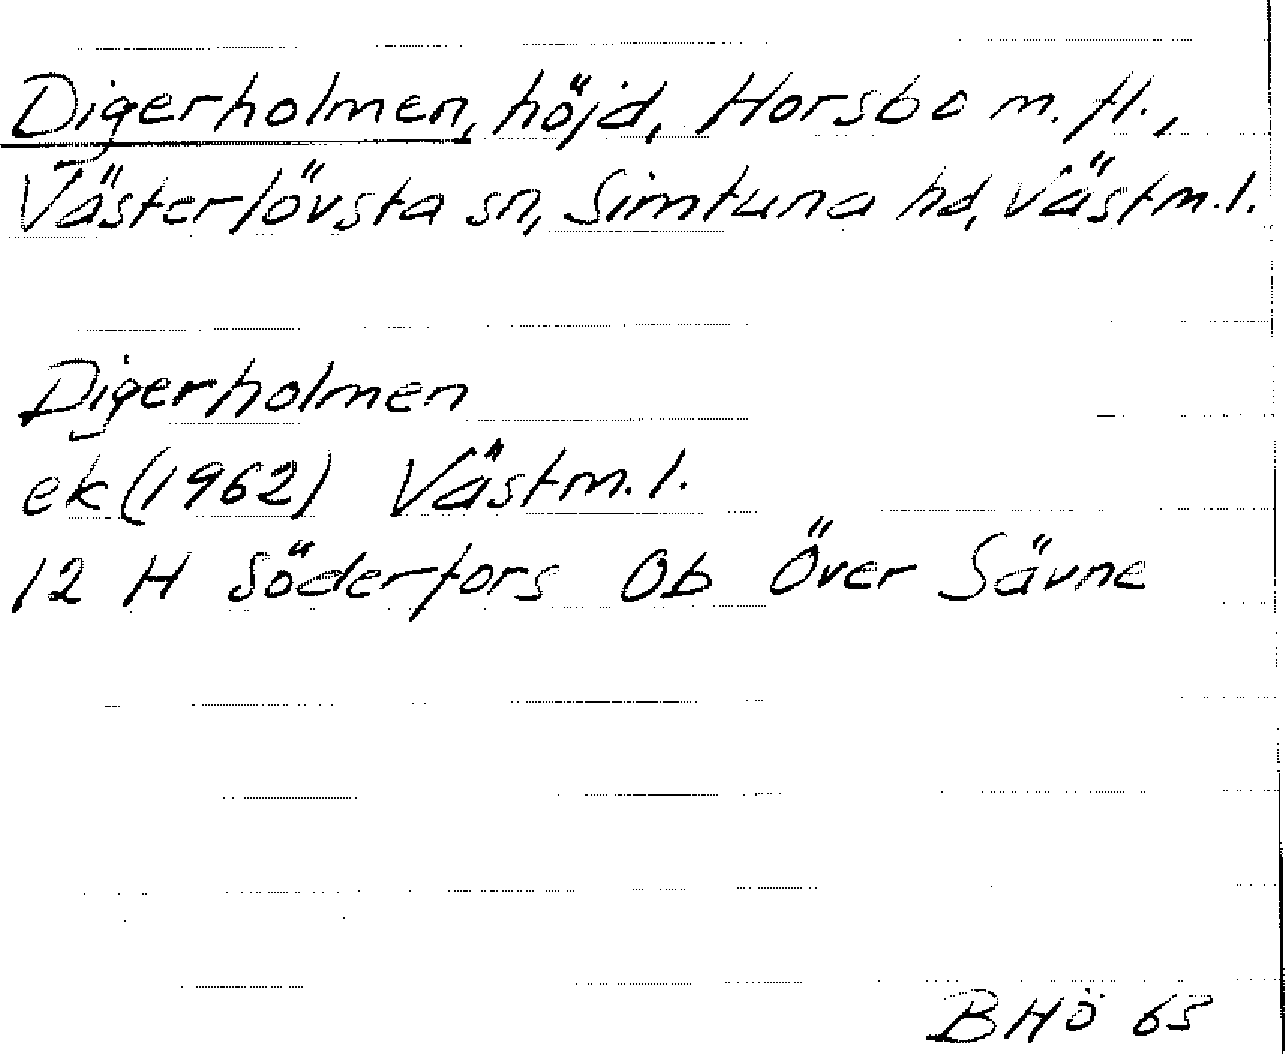 Digerholmen, höjd, Horsbo m. fl.,
Västerlövsta sn, Simtuna hd, Västm. l.
Digerholmen
ek (1962) Västm. l.
12 H Söderfors Ob Över Sävne
BHÖ 65